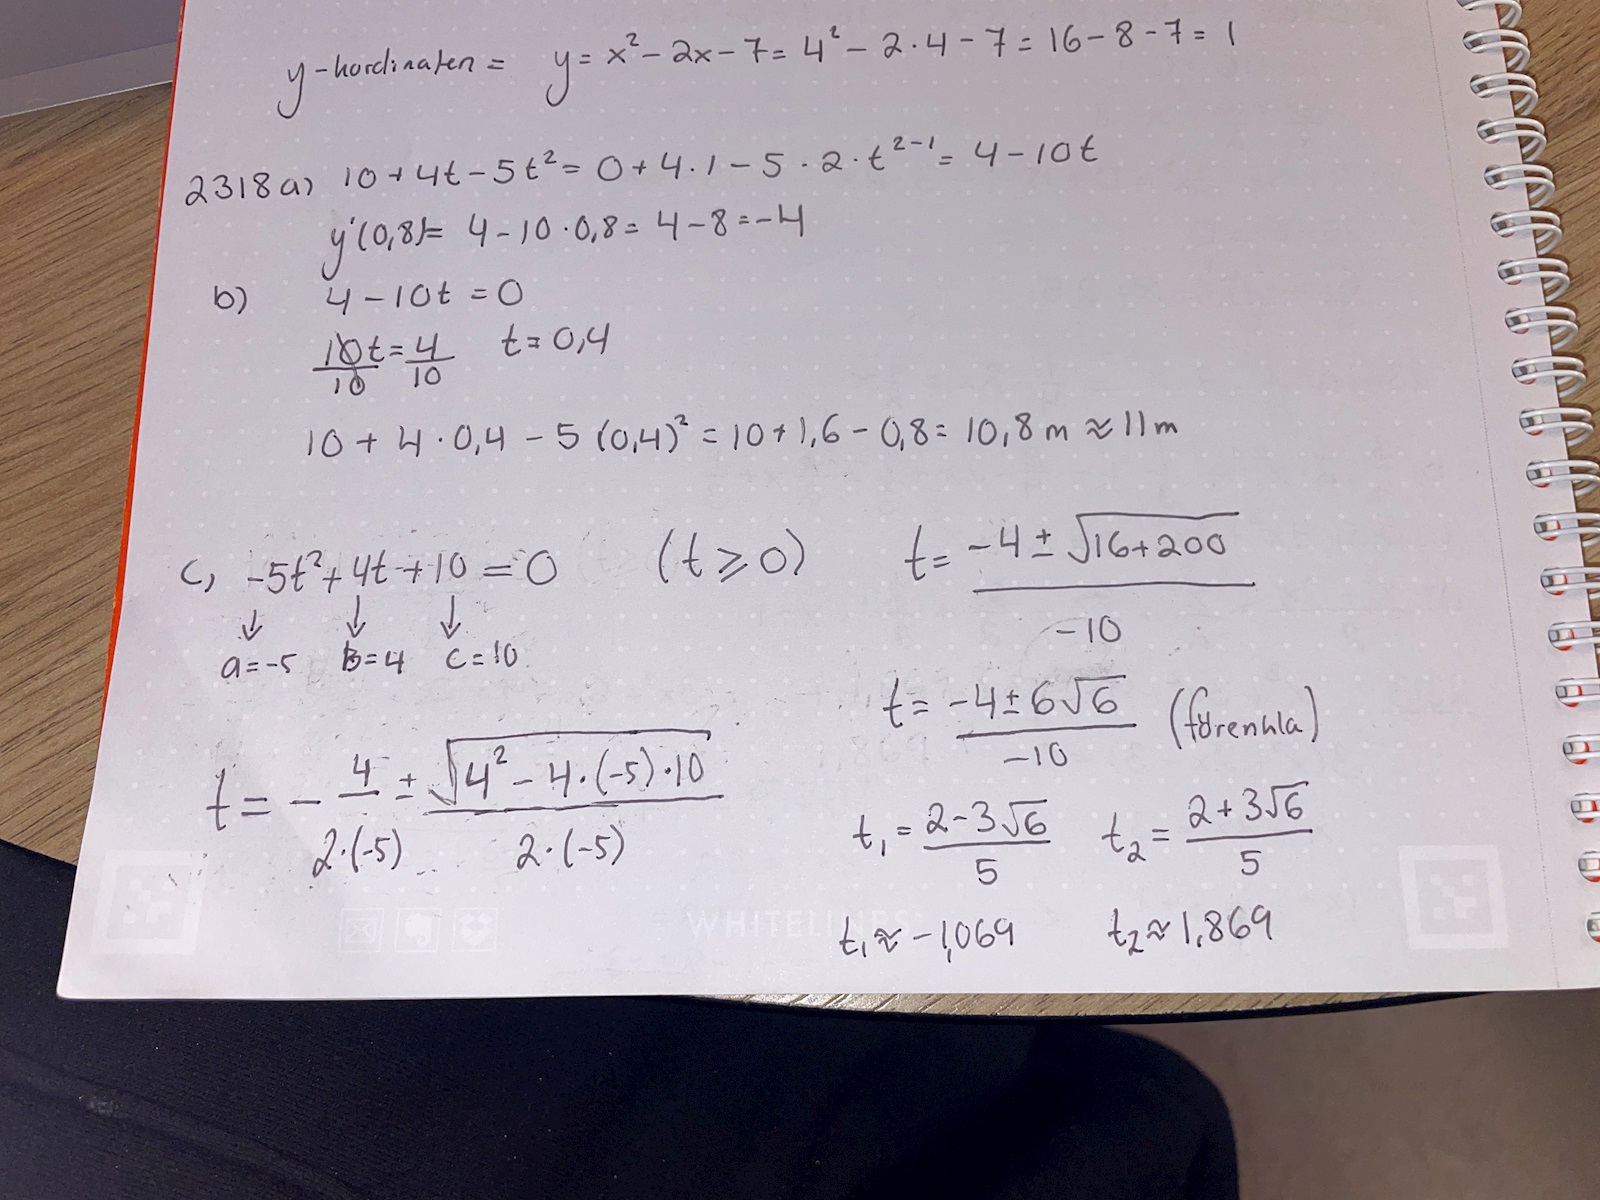 y-kordinaten = y = x² - 2x - 7 = 4² - 2·4 - 7 = 16 - 8 - 7 = 1
2318 a) 10 + 4t - 5t² = 0 + 4·1 - 5·2·t²⁻¹ = 4 - 10t
y'(0,8) = 4 - 10·0,8 = 4 - 8 = -4
b) 4 - 10t = 0
10t/10 = 4/10 t = 0,4
10 + 4·0,4 - 5(0,4)² = 10 + 1,6 - 0,8 = 10,8 m ≈ 11 m
c, -5t² + 4t + 10 = 0 (t ≥ 0)
↓ ↓ ↓
a = -5 b = 4 c = 10
t = - 4/2·(-5) ± √(4² - 4·(-5)·10)/2·(-5)
t = (-4 ± √(16+200))/-10
t = (-4 ± 6√6)/-10 (förenkla)
t₁ = (2 - 3√6)/5 t₂ = (2 + 3√6)/5
t₁ ≈ -1,069 t₂ ≈ 1,869
WHITELINES